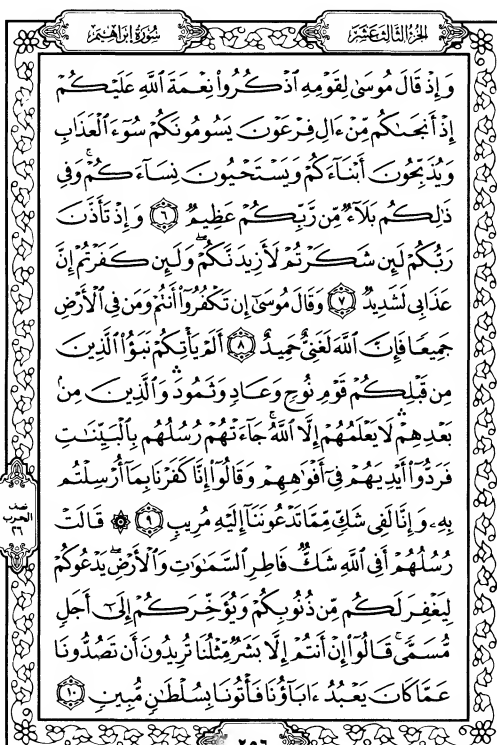 الجزء الثالث عشر
سورة إبراهيم
وَإِذْ قَالَ مُوسَىٰ لِقَوْمِهِ ٱذْكُرُوا۟ نِعْمَةَ ٱللَّهِ عَلَيْكُمْ
إِذْ أَنجَىٰكُم مِّنْ ءَالِ فِرْعَوْنَ يَسُومُونَكُمْ سُوٓءَ ٱلْعَذَابِ
وَيُذَبِّحُونَ أَبْنَآءَكُمْ وَيَسْتَحْيُونَ نِسَآءَكُمْ ۚ وَفِى
ذَٰلِكُم بَلَآءٌ مِّن رَّبِّكُمْ عَظِيمٌ ٦ وَإِذْ تَأَذَّنَ
رَبُّكُمْ لَئِن شَكَرْتُمْ لَأَزِيدَنَّكُمْ ۖ وَلَئِن كَفَرْتُمْ إِنَّ
عَذَابِى لَشَدِيدٌ ٧ وَقَالَ مُوسَىٰٓ إِن تَكْفُرُوٓا۟ أَنتُمْ وَمَن فِى ٱلْأَرْضِ
جَمِيعًا فَإِنَّ ٱللَّهَ لَغَنِىٌّ حَمِيدٌ ٨ أَلَمْ يَأْتِكُمْ نَبَؤُا۟ ٱلَّذِينَ
مِن قَبْلِكُمْ قَوْمِ نُوحٍ وَعَادٍ وَثَمُودَ ۛ وَٱلَّذِينَ مِنۢ
بَعْدِهِمْ ۛ لَا يَعْلَمُهُمْ إِلَّا ٱللَّهُ ۚ جَآءَتْهُمْ رُسُلُهُم بِٱلْبَيِّنَـٰتِ
فَرَدُّوٓا۟ أَيْدِيَهُمْ فِىٓ أَفْوَٰهِهِمْ وَقَالُوٓا۟ إِنَّا كَفَرْنَا بِمَآ أُرْسِلْتُم
بِهِۦ وَإِنَّا لَفِى شَكٍّ مِّمَّا تَدْعُونَنَآ إِلَيْهِ مُرِيبٍ ٩ ۞ قَالَتْ
رُسُلُهُمْ أَفِى ٱللَّهِ شَكٌّ فَاطِرِ ٱلسَّمَـٰوَٰتِ وَٱلْأَرْضِ ۖ يَدْعُوكُمْ
لِيَغْفِرَ لَكُم مِّن ذُنُوبِكُمْ وَيُؤَخِّرَكُمْ إِلَىٰٓ أَجَلٍ
مُّسَمًّى ۚ قَالُوٓا۟ إِنْ أَنتُمْ إِلَّا بَشَرٌ مِّثْلُنَا تُرِيدُونَ أَن تَصُدُّونَا
عَمَّا كَانَ يَعْبُدُ ءَابَآؤُنَا فَأْتُونَا بِسُلْطَـٰنٍ مُّبِينٍ ١٠
نصف
الحزب
٢٦
٢٥٦